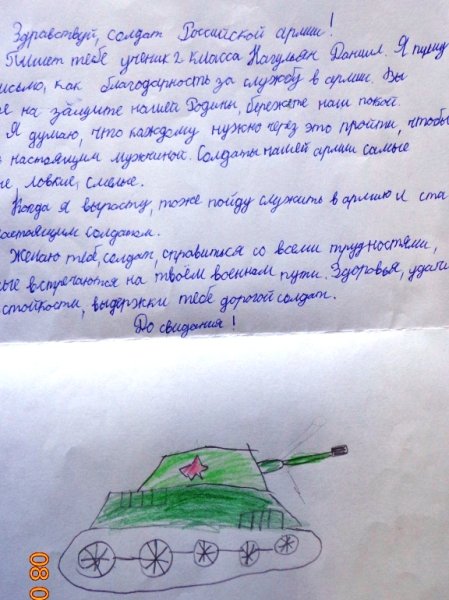 Здравствуй, солдат Российской армии!
Пишет тебе ученик 2 класса Нагульян Даниил. Я пишу
письмо, как благодарность за службу в армии. Вы
на защите нашей Родины, бережете наш покой.
Я думаю, что каждому нужно через это пройти, чтобы
настоящим мужчиной. Солдаты нашей армии самые
ловкие, смелые.
Когда я вырасту, тоже пойду служить в армию и ста
настоящим солдатом.
Желаю тебе, солдат, справиться со всеми трудностями,
встречаются на твоём военном пути. Здоровья, удачи
стойкости, выдержки тебе дорогой солдат.
До свидания!
80 0